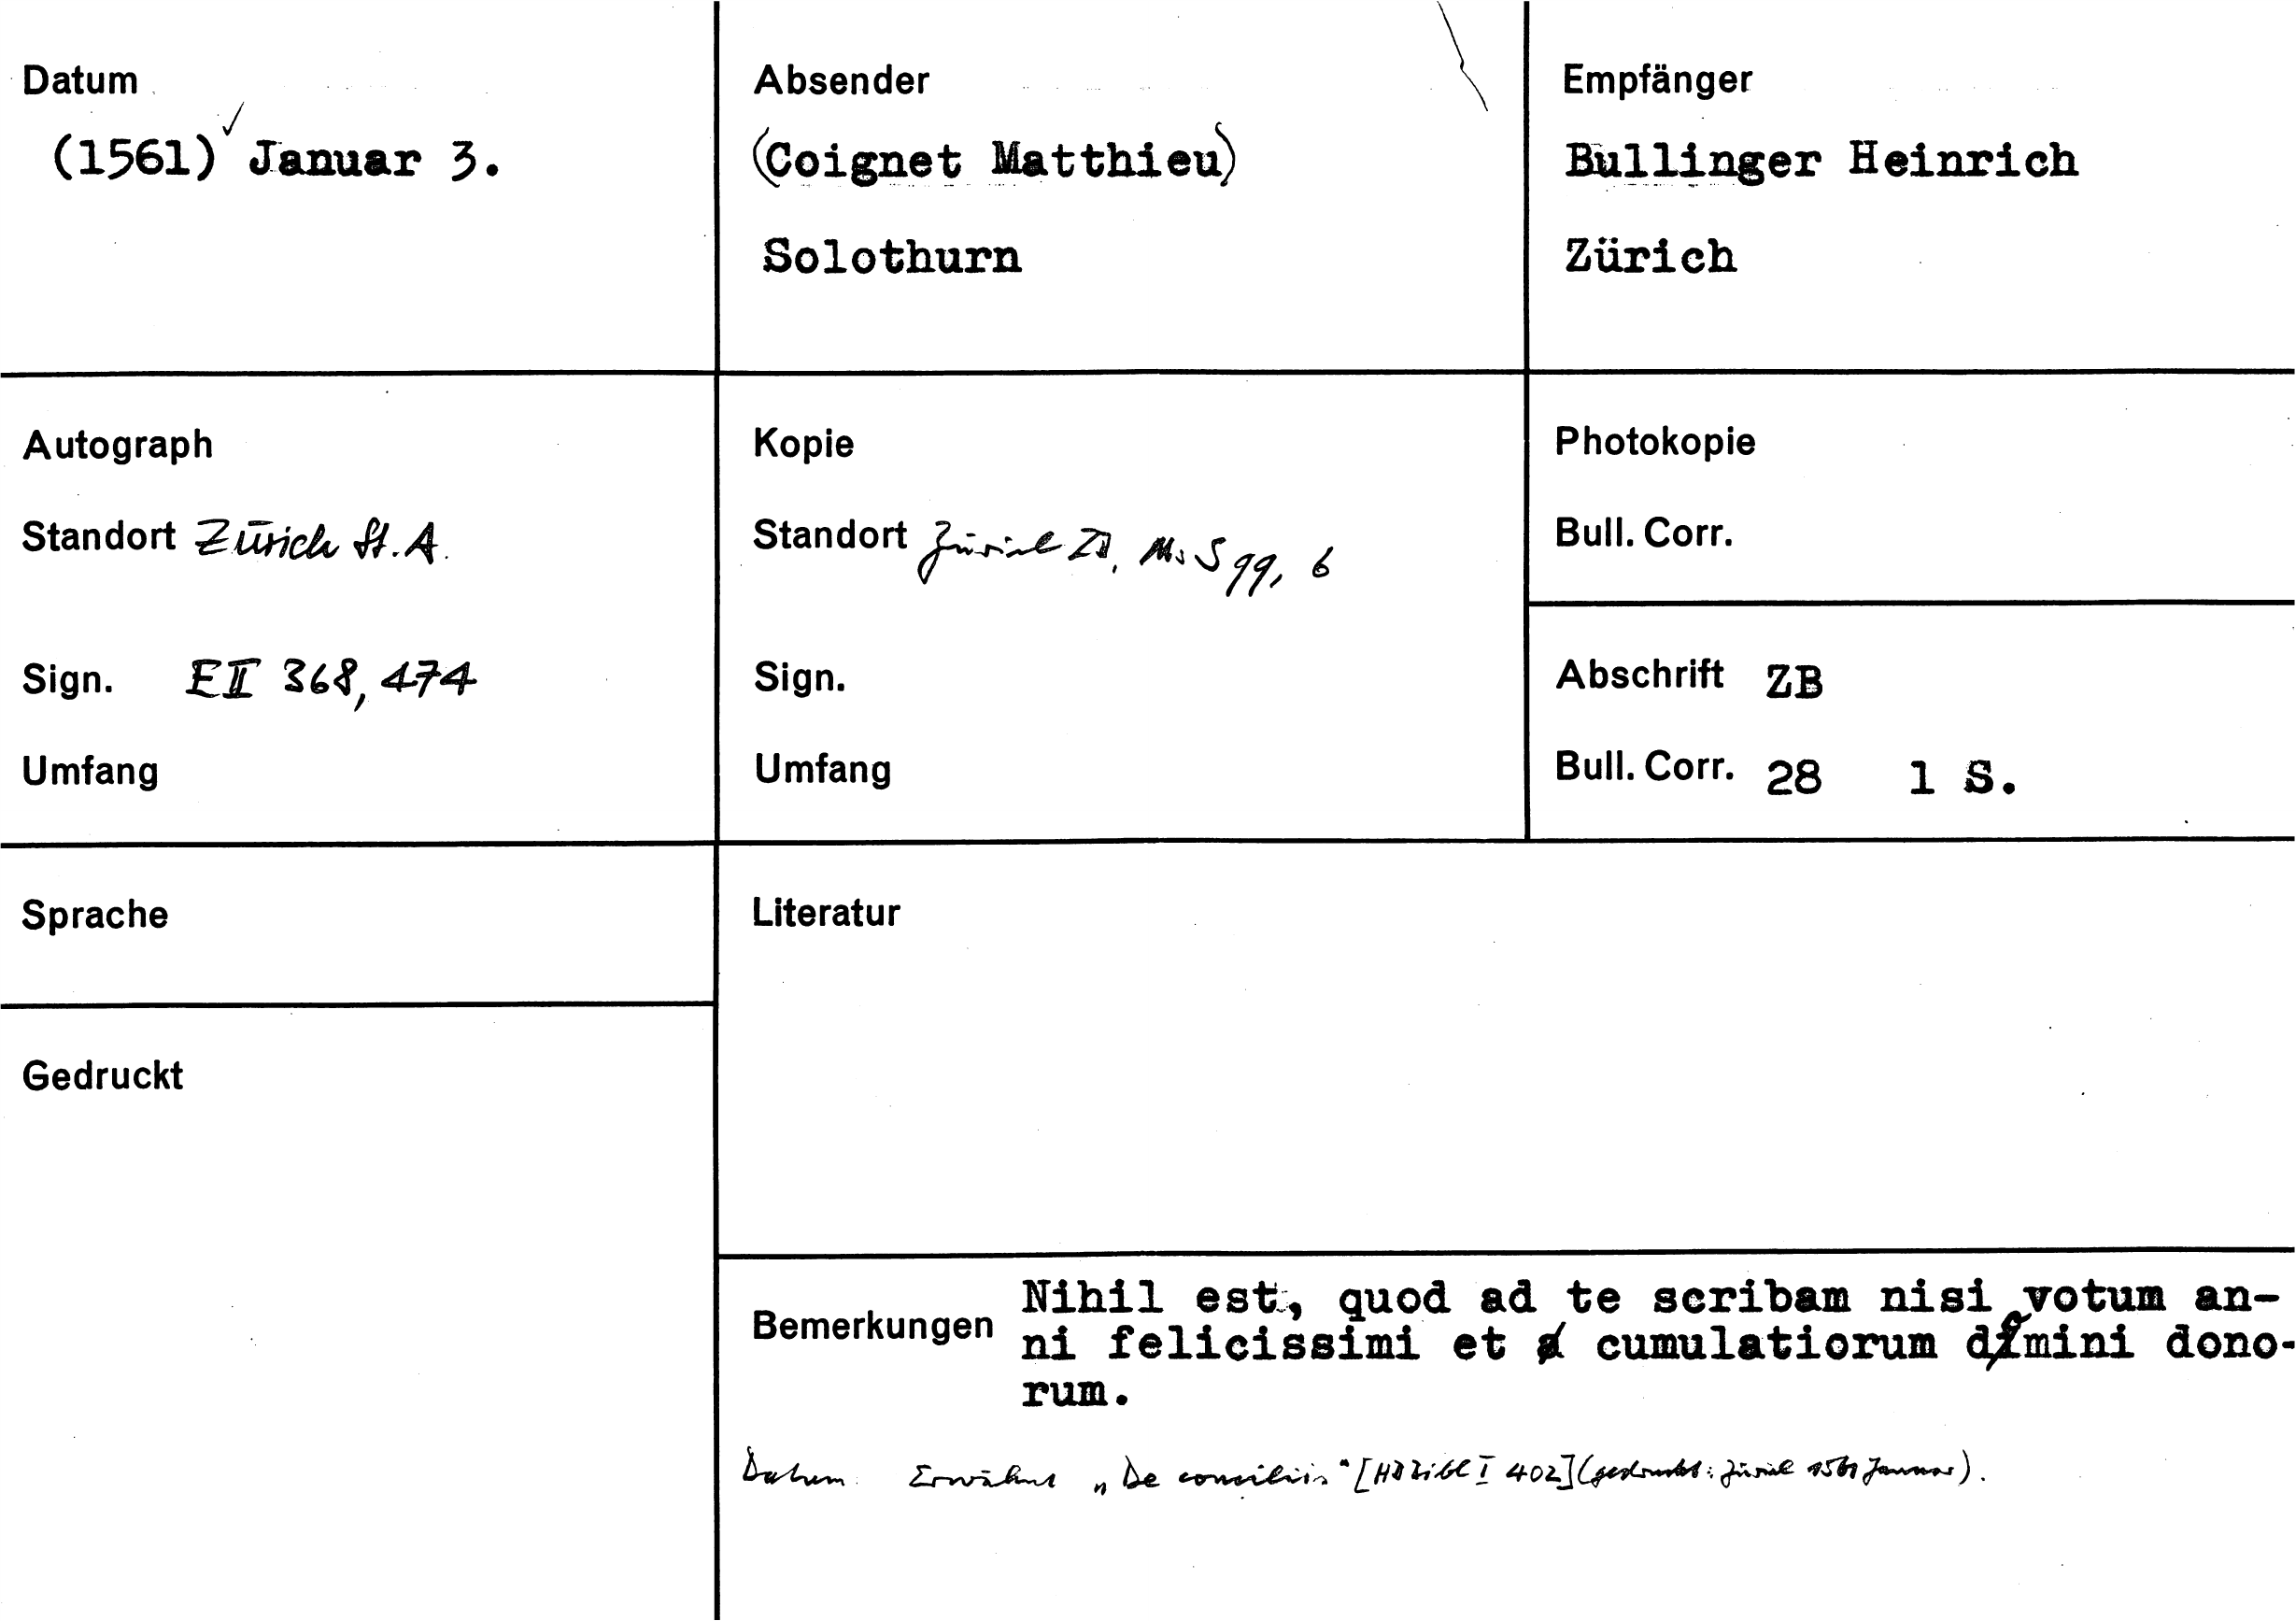 Datum
(1561) Januar 3.
Absender
(Coignet Matthieu)
Solothurn
Empfänger
Bullinger Heinrich
Zürich
Autograph
Standort Zürich St. A.
Sign. E II 368, 474
Umfang
Kopie
Standort Zürich ZB, Ms S 99, 6
Sign.
Umfang
Photokopie
Bull. Corr.
Abschrift ZB
Bull. Corr. 28 1 S.
Sprache
Literatur
Gedruckt
Bemerkungen
Nihil est, quod ad te scribam nisi votum an-
ni felicissimi et cumulatiorum domini dono-
rum.
Datum: Erwähnt „De conciliis" [HBBibl I 402] (gedruckt: Zürich 1561 Januar).